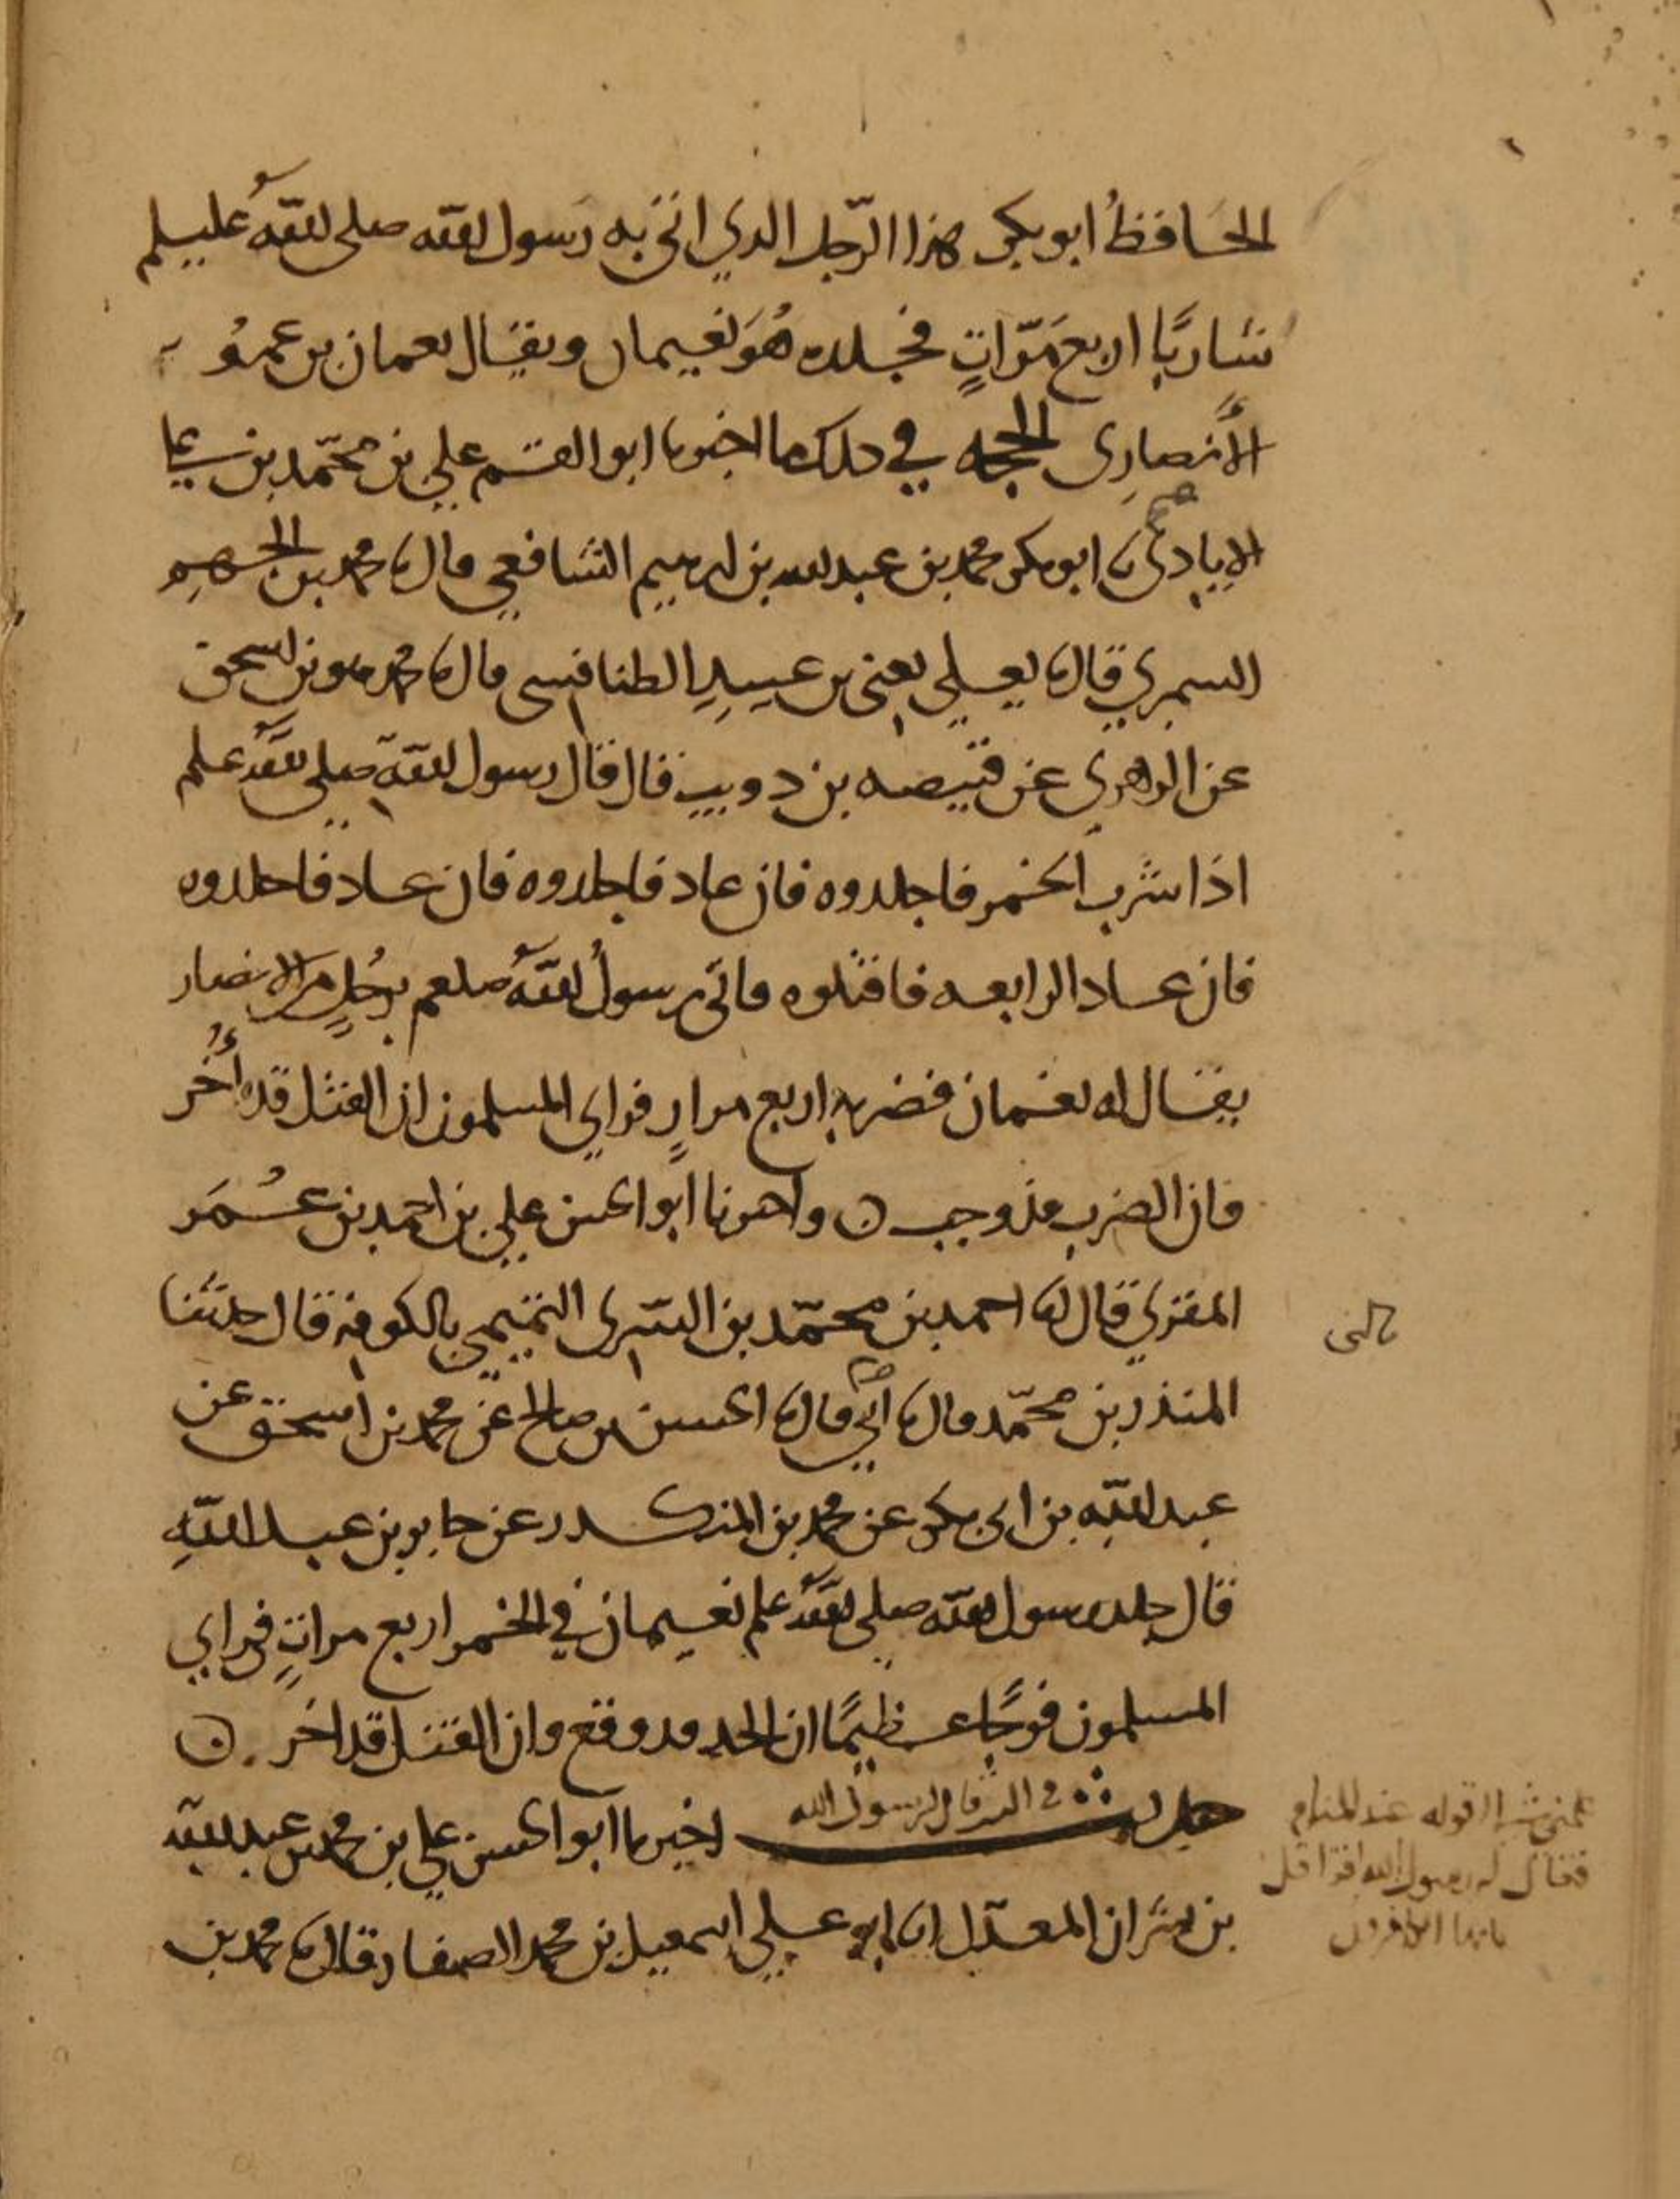 الحَافظُ ابو بكر هذا الرّجل الذي اتى به رسول الله صلى اللهُ عليسلم
شاربًا اربع مَرّاتٍ فجلده هُوَ نعيمان ويقال نعمان بن عمرو
الأنصاري الحجه في ذلك ما اخبرنا ابو القسم علي بن محمّد بن
الايادي ابو بكر محمد بن عبد الله بن ابرهيم الشافعي قال محمد بن الجهمِ
السمري قال يعلي يعني بن عبيدِ الطنافسى قال محمد هو بن اسحق
عن الزهري عن قبيصه بن ذويب قال قال رسول الله صلى الله علم
اذا شرب الخمر فاجلدوه فان عاد فاجلدوه فان عاد فاجلدوه
فان عاد الرابعه فاقتلوه فاتي رسولُ اللهُ صلعم برجُلٍ من الانصار
يقال له نعمان فضربه اربع مرارٍ فراي المسلمون ان القتل قد أُخر
فان الضرب قد وجب ن واخبرنا ابو الحسن علي بن احمد بن عُمَر
المقري قال احمد بن محمّد بن السّرى التميمي بالكوفه قال حدثنا
المنذر بن محمّد قال ابي قال الحسن بن صالح عن محمد بن اسحق عن
عبد اللّه بن ابي بكر عن محمد بن المنكدر عن جابر بن عبد اللّهِ
قال جلد رسول الله صلى الله علم نعيمان في الخمر اربع مراتٍ فراي
المسلمون فرجًا عظيمًا ان الحد قد وقع وان القتل قد اخر . ن
حديث اخبرنا ابو الحسن علي بن محمد بن عبد الله
بن بشران المعدّل ابو علي اسمعيل بن محمد الصفار قال محمد بن
علمني شيا اقوله عند المنام
فقال له رسول الله اقرا قل
يايها الكافرون